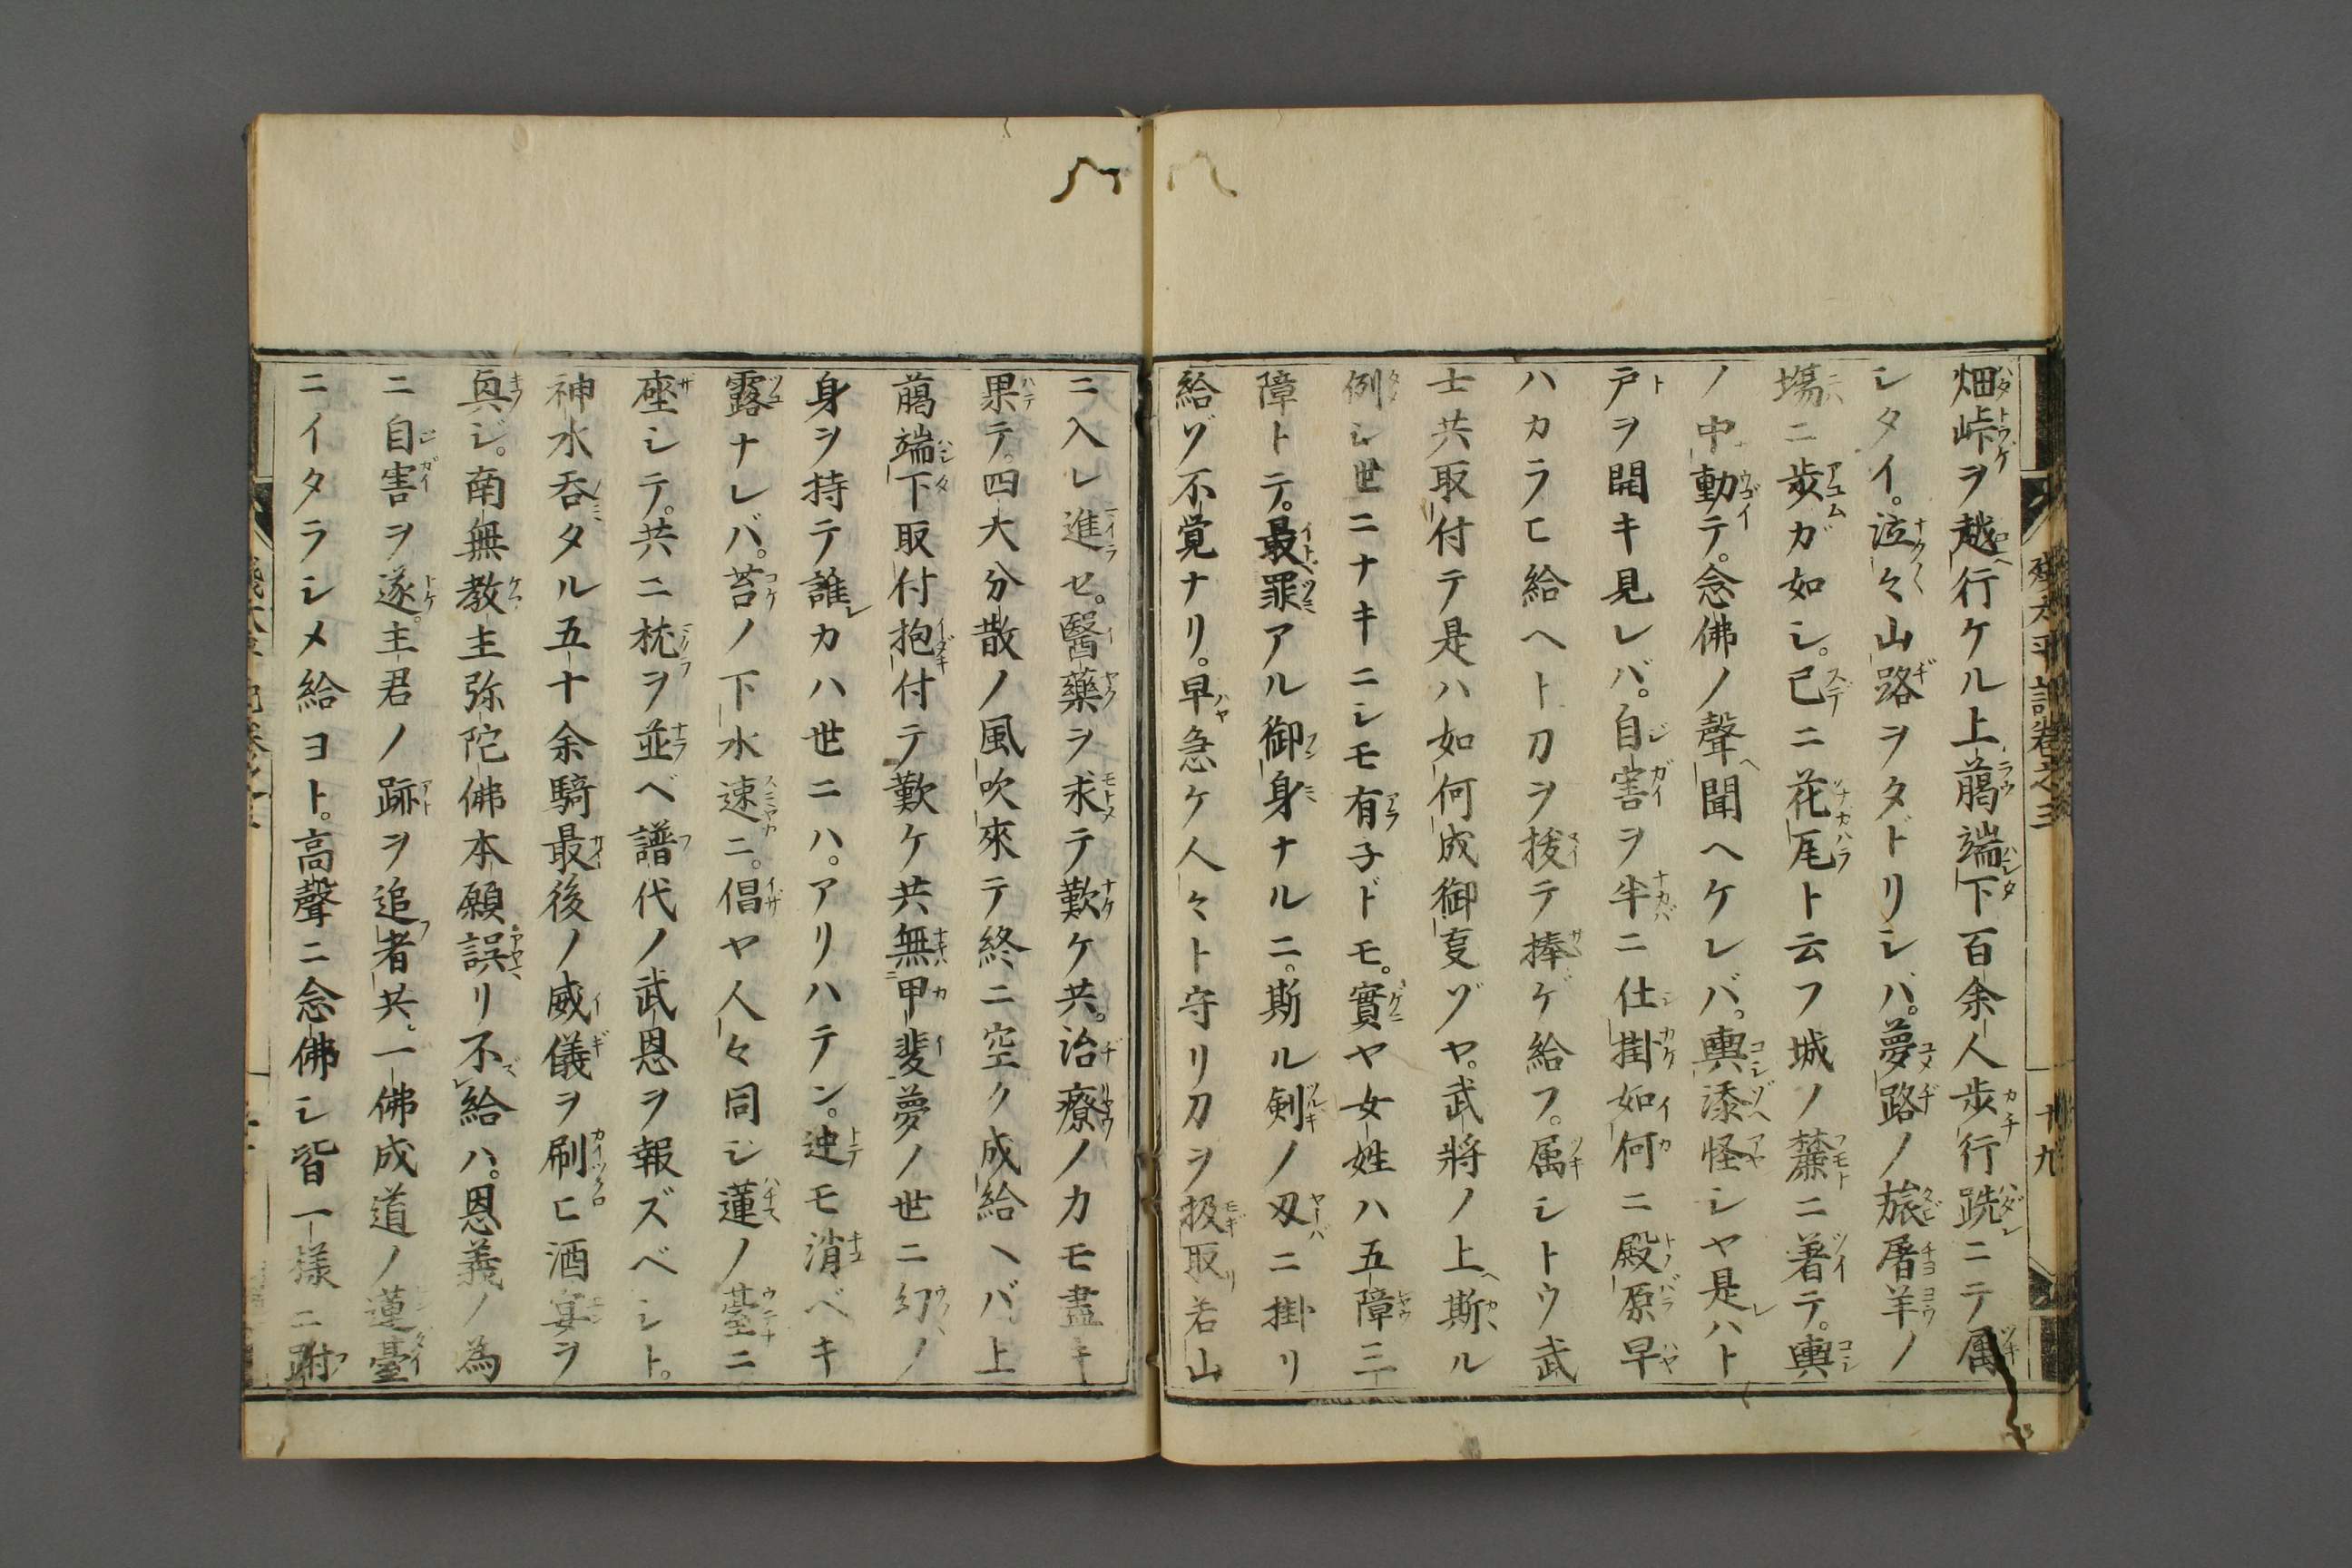 畑峠ヲ越行ケル上﨟端下百余人歩行跣ニテ属
シタイ。泣々山路ヲタドリシバ。夢路ノ旅屠羊ノ
場ニ歩ガ如シ。已ニ花尾ト云フ城ノ麓ニ著テ。輿
ノ中動テ。念佛ノ聲聞ヘケレバ。輿添怪シヤ是ハト
戸ヲ開キ見レバ。自害ヲ半ニ仕掛如何ニ殿原早
ハカラヒ給ヘト刀ヲ拔テ捧ゲ給フ。属シトウ武
士共取付テ是ハ如何成御叓ゾヤ。武將ノ上斯ル
例シ世ニナキニシモ有子ドモ。實ヤ女姓ハ五障三
障トテ。最罪アル御身ナルニ。斯ル剣ノ刄ニ掛リ
給ゾ不覚ナリ。早急ケ人々ト守リ刀ヲ扱取若山
ニ入レ進セ。醫藥ヲ求テ歎ケ共。治療ノカモ盡キ
果テ。四大分散ノ風吹來テ終ニ空ク成給ヘバ上
﨟端下取付抱付テ歎ケ共無甲斐夢ノ世ニ幻ノ
身ヲ持テ誰カハ世ニハ。アリハテン。迚モ消ベキ
露ナレバ。苔ノ下水速ニ。倡ヤ人々同シ蓮ノ臺ニ
座シテ。共ニ枕ヲ並ベ譜代ノ武恩ヲ報ズベシト。
神水呑タル五十余騎最後ノ威儀ヲ刷ヒ酒宴ヲ
真ジ。南無教主弥陀佛本願誤リ不給ハ。恩義ノ為
ニ自害ヲ遂。主君ノ跡ヲ追者共。一佛成道ノ蓮臺
ニイタラシメ給ヨト。高聲ニ念佛シ皆一様ニ附
残太平記巻之三
十九